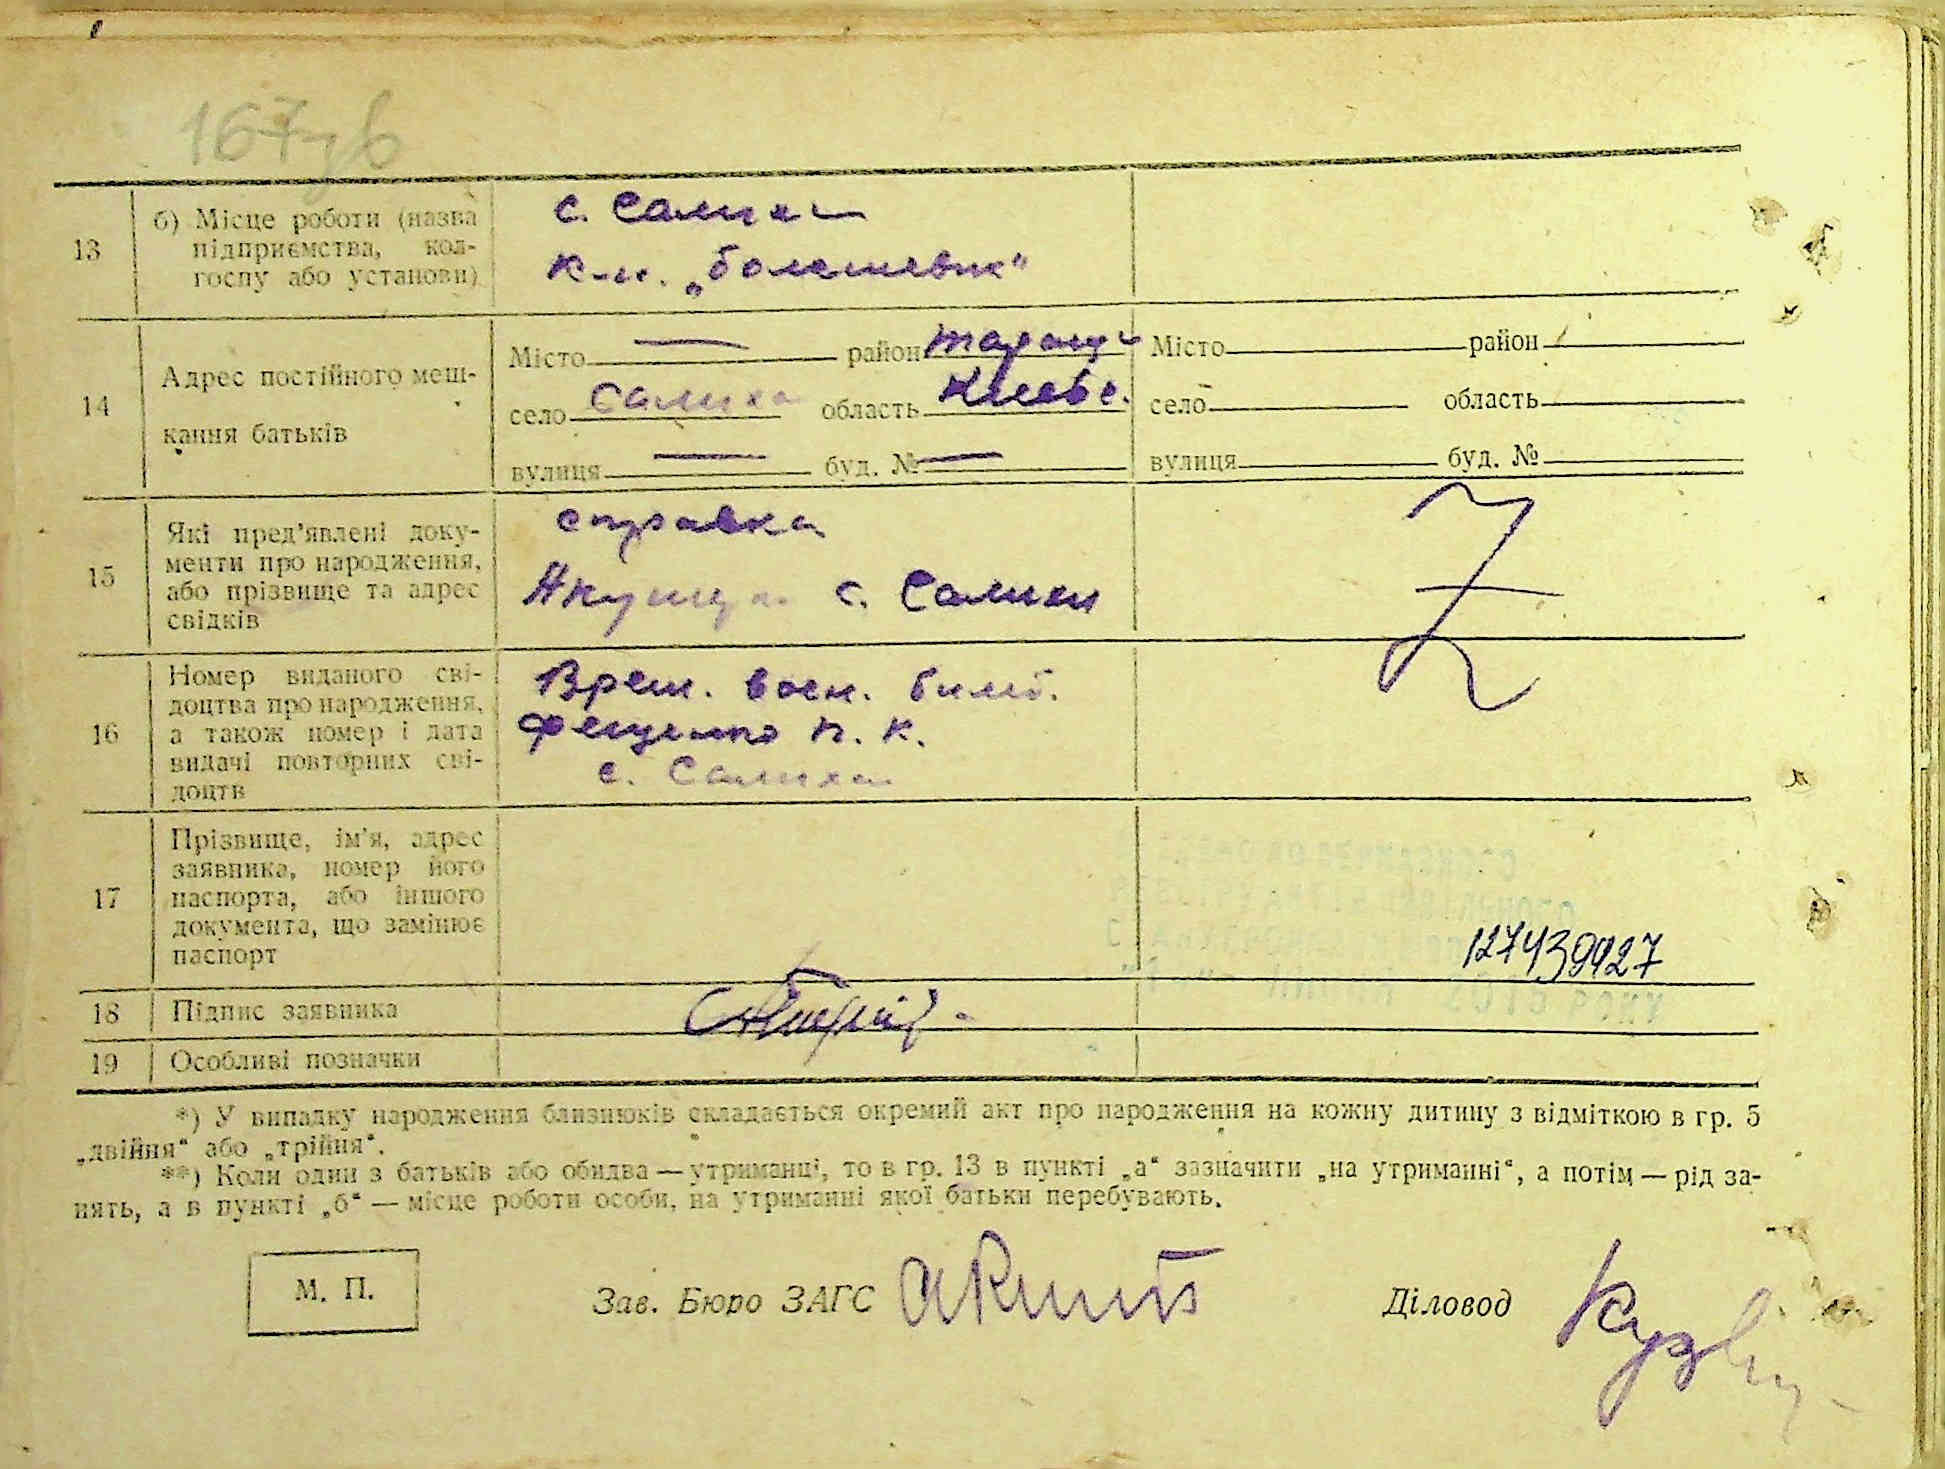 167
13
б) Місце роботи (назва
підприємства, кол-
госпу або установи)
с. Салиха
к-п. „большевик"
14
Адрес постійного меш-
кання батьків
Місто — район Таращ. Місто район
село Салиха область Киевс. село область
вулиця — буд. № — вулиця буд. №
15
Які пред'явлені доку-
менти про народження,
або прізвище та адрес
свідків
справка
Акушера с. Салихи
Z
16
Номер виданого сві-
доцтва про народження,
а також номер і дата
видачі повторних сві-
доцтв
Врем. воен. билет.
Фещенко П. К.
с. Салиха
17
Прізвище, ім'я, адрес
заявника, номер його
паспорта, або іншого
документа, що замінює
паспорт
18
Підпис заявника
19
Особливі позначки
*) У випадку народження близнюків складається окремий акт про народження на кожну дитину з відміткою в гр. 5
„двійня" або „трійня".
**) Коли один з батьків або обидва — утриманці, то в гр. 13 в пункті „а" зазначити „на утриманні", а потім — рід за-
нять, а в пункті „б" — місце роботи особи, на утриманні якої батьки перебувають.
М. П.
Зав. Бюро ЗАГС
Діловод